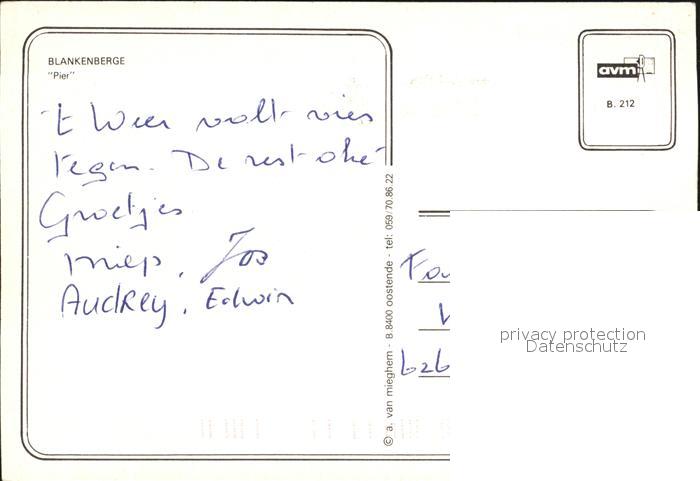 BLANKENBERGE
"Pier"
't Weer valt vies
tegen. De rest oké
Groetjes
Miep, Jos
Audrey, Edwin
avm
B. 212
© a. van mieghem - B.8400 oostende - tel: 059/70.86.22
Fa
privacy protection
Datenschutz
626